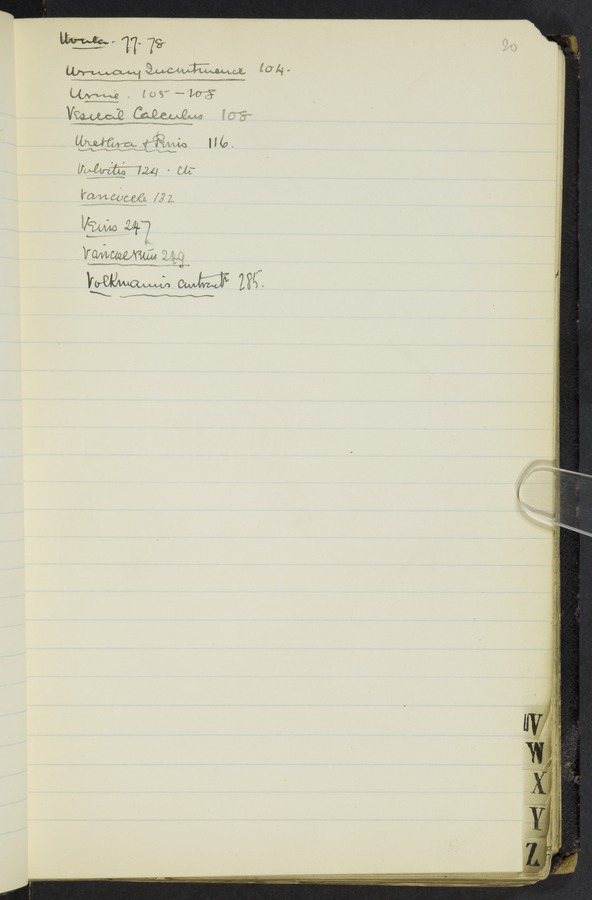 Uvula. 77. 78
20
Urinary Incontinence 104.
Urine. 105-108
Vesical Calculus 108
Urethra & Penis 116.
Vulvitis 124.
Varicocele 132
Veins 247
Varicose Veins 249
Volkmann's contract 285.
UV
W
X
Y
Z